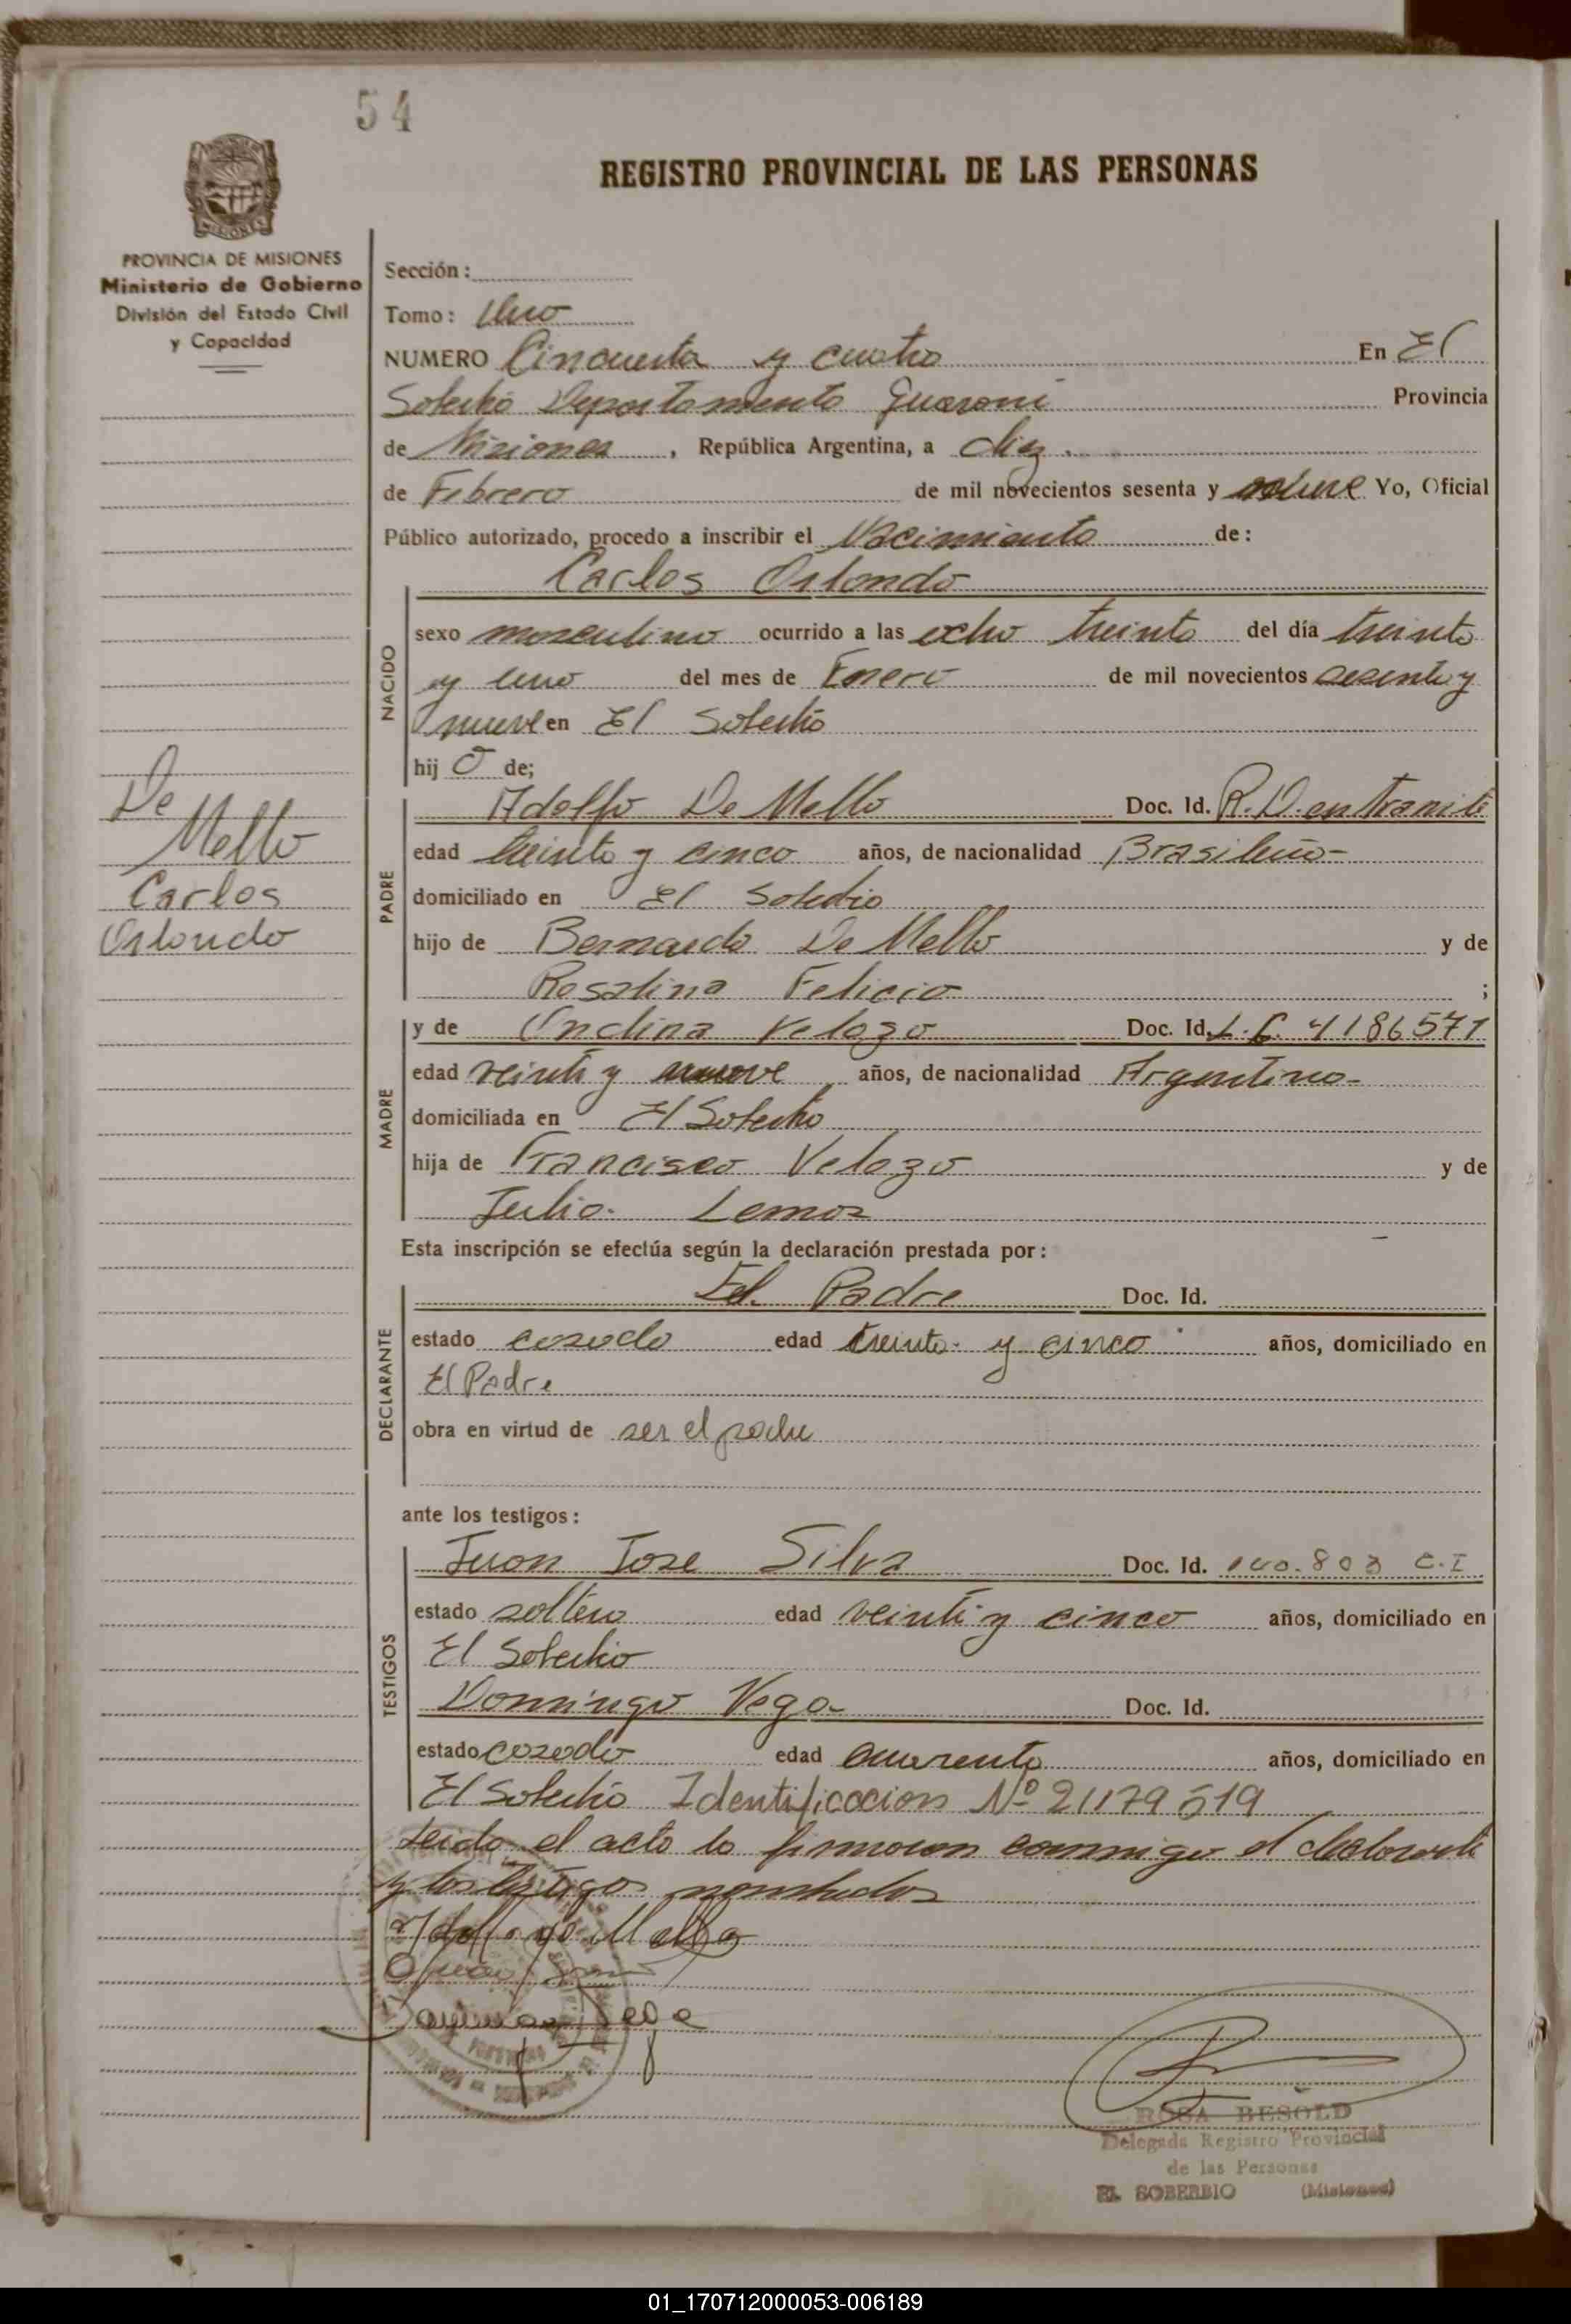 54
REGISTRO PROVINCIAL DE LAS PERSONAS
MISIONES
PROVINCIA DE MISIONES
Ministerio de Gobierno
División del Estado Civil
y Capacidad
Sección:
Tomo: Uno
NUMERO Cincuenta y cuatro En El
Soberbio Departamento Guarani Provincia
de Misiones, República Argentina, a diez
de Febrero de mil novecientos sesenta y nueve Yo, Oficial
Público autorizado, procedo a inscribir el Nacimiento de:
Carlos Orlando
NACIDO
sexo masculino ocurrido a las ocho treinta del día treinta
y uno del mes de Enero de mil novecientos sesenta y
nueve en El Soberbio
hijo de;
De
Mello
Carlos
Orlando
PADRE
Adolfo De Mello Doc. Id. R.D. en tramite
edad treinta y cinco años, de nacionalidad Brasileño-
domiciliado en El Soberbio
hijo de Bernardo De Mello y de
Rosalina Felicio ;
MADRE
y de Ondina Velozo Doc. Id. L.C. 4186571
edad veinti y nueve años, de nacionalidad Argentina-
domiciliada en El Soberbio
hija de Francisco Velozo y de
Julia Lemos
Esta inscripción se efectúa según la declaración prestada por:
DECLARANTE
El Padre Doc. Id.
estado casado edad treinta y cinco años, domiciliado en
El Padre
obra en virtud de ser el padre
ante los testigos:
TESTIGOS
Juan Jose Silva Doc. Id. 140.803 C.I
estado soltero edad veinti y cinco años, domiciliado en
El Soberbio
Domingo Vega Doc. Id.
estado casado edad cuarenta años, domiciliado en
El Soberbio Identificacion Nº 21179519
Leida el acta la firmaron conmigo el declarante
y los testigos nombrados
Adolfo de Mello
Vega
ROSA BESOLD
Delegada Registro Provincial
de las Personas
EL SOBERBIO (Misiones)
01_170712000053-006189